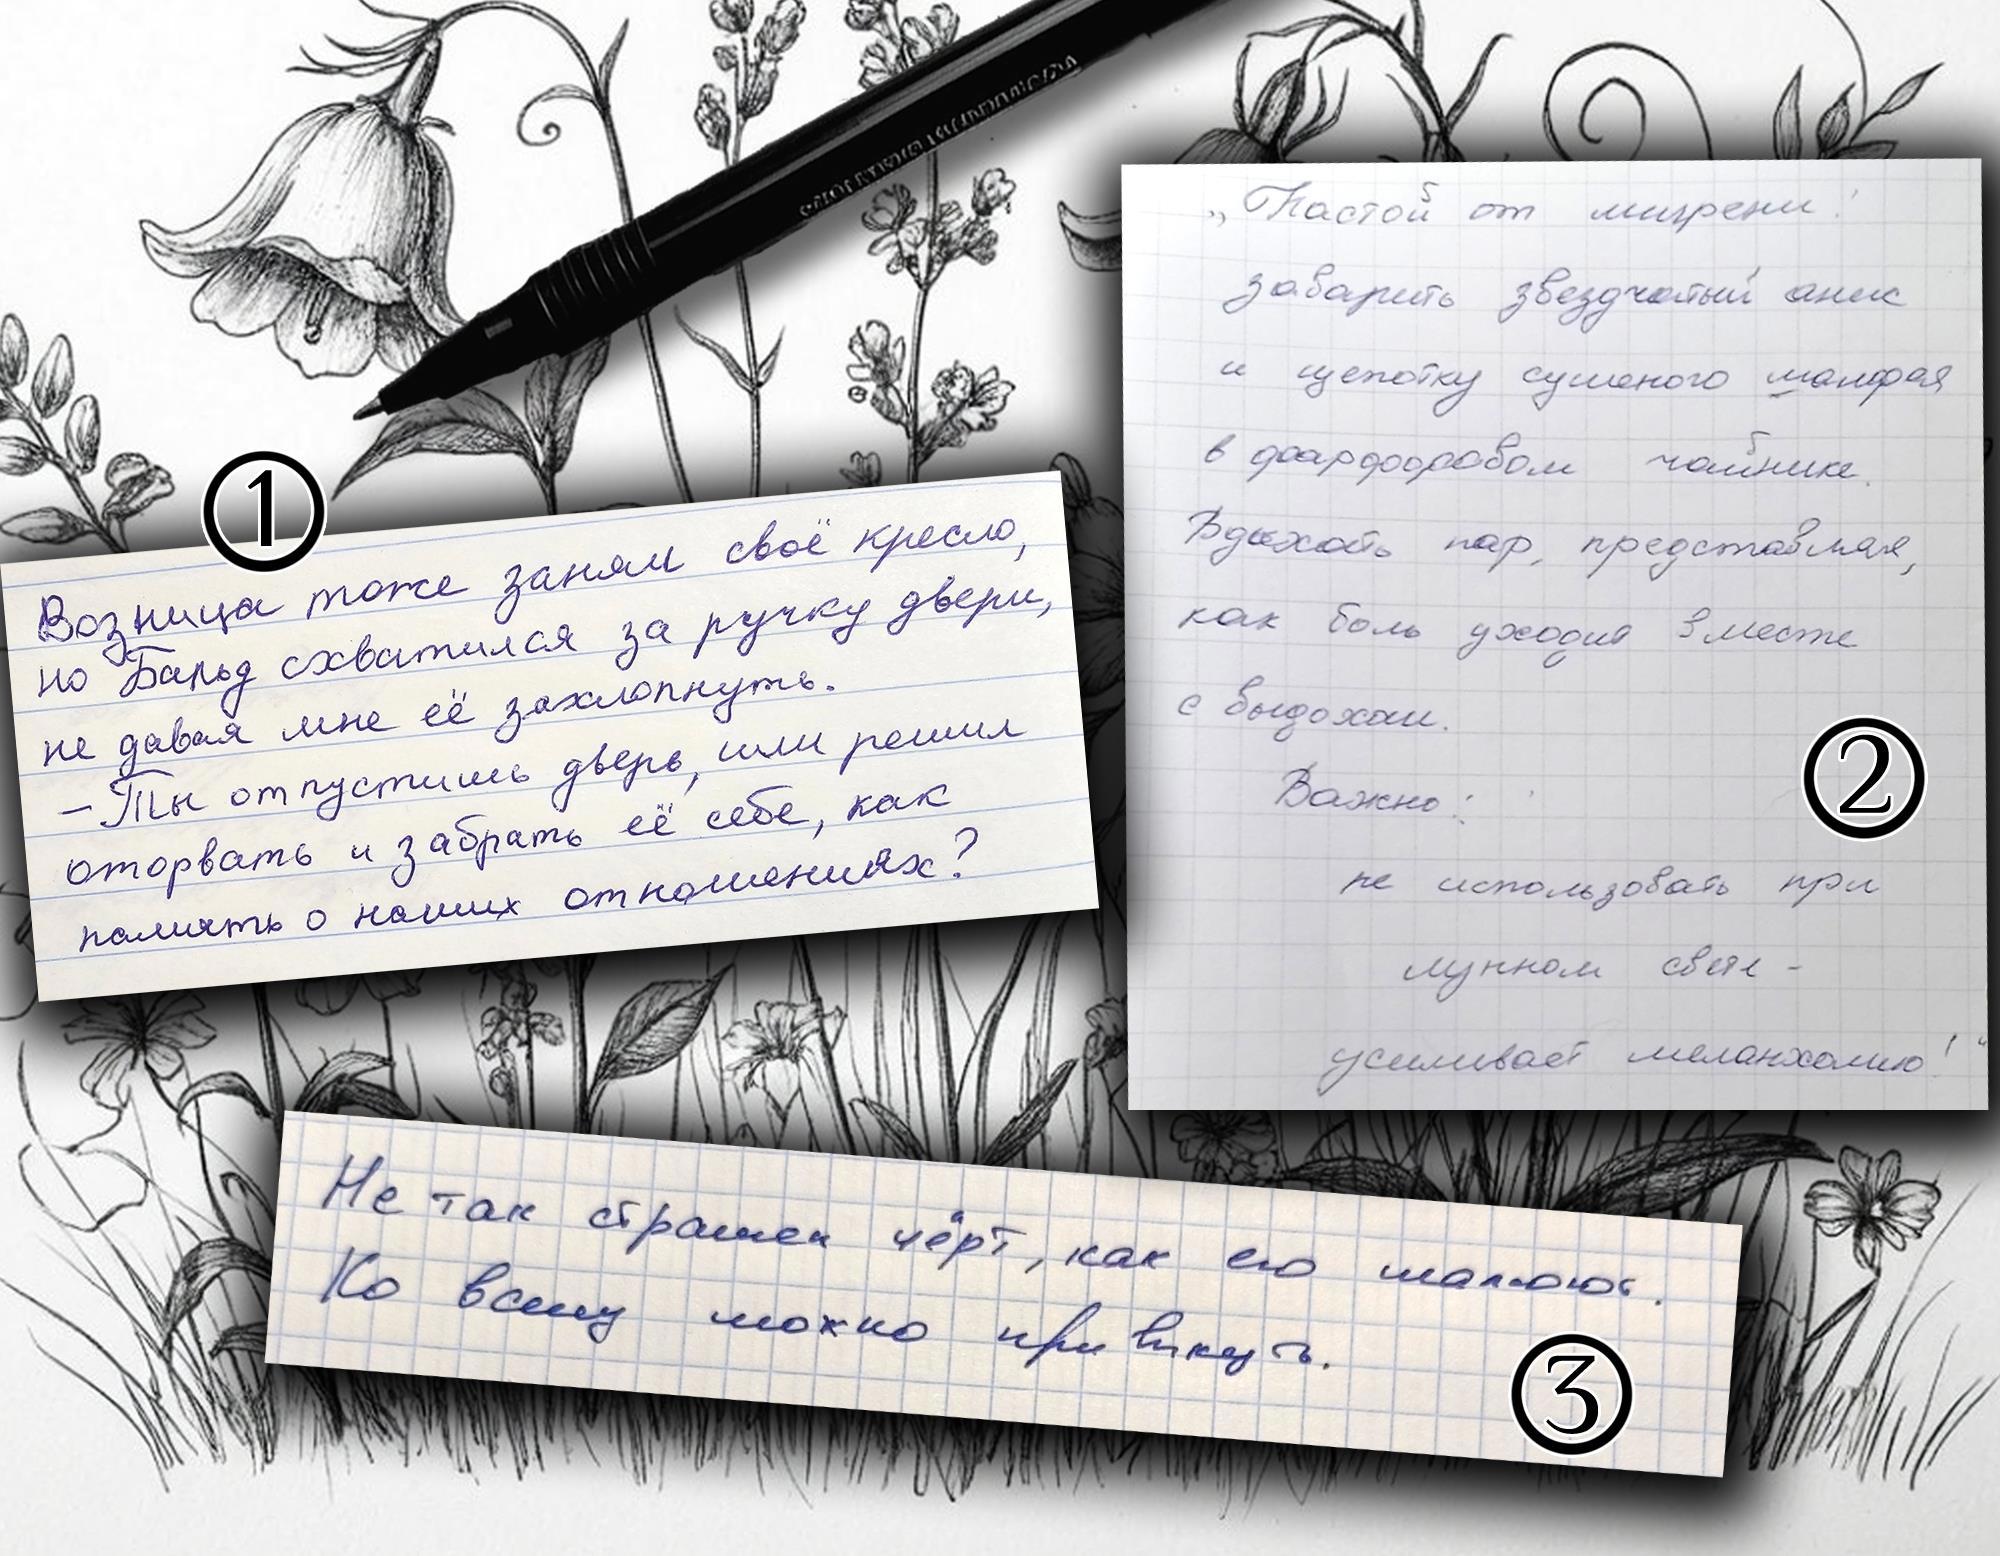 1
Возница тоже занял своё кресло,
но Бальд схватился за ручку двери,
не давая мне её захлопнуть.
– Ты отпустишь дверь, или решил
оторвать и забрать её себе, как
память о наших отношениях?
2
„Настой от мигрени:
заварить звездчатый анис
и щепотку сушеного шалфея
в фарфоровом чайнике.
Вдыхать пар, представляя,
как боль уходит вместе
с выдохом.
Важно:
не использовать при
лунном свете –
усиливает меланхолию!“
Не так страшен чёрт, как его малюют.
Ко всему можно привыкнуть.
3